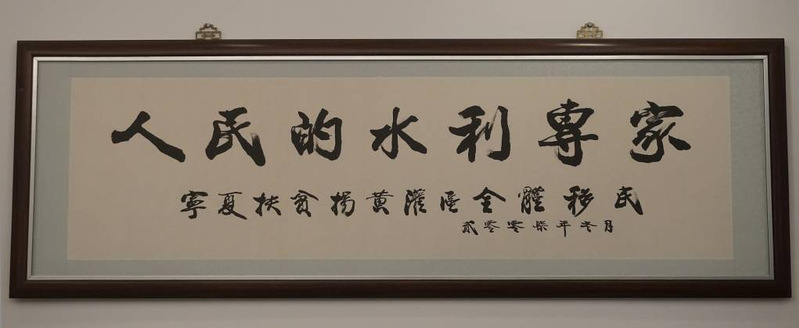 人民的水利專家
寧夏扶貧揚黃灌區全體移民
贰零零柒年冬月